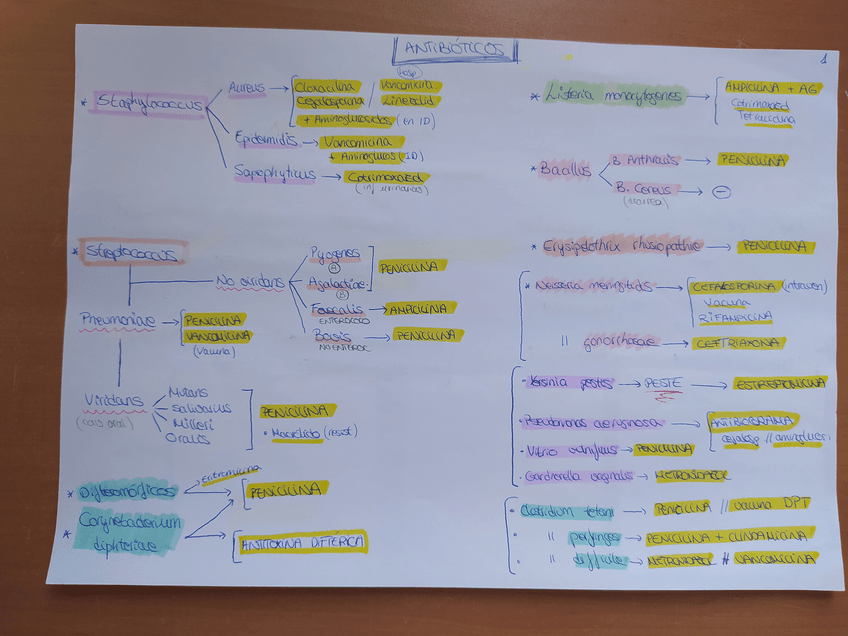 ANTIBIÓTICOS
1
* Staphylococcus
Aureus
Cloxacilina
Cefalosporina
+ Aminoglucósidos (en ID)
Vancomicina
Linezolid
Epidermidis
Vancomicina
+ Aminoglucos (ID)
Saprophyticus
Cotrimoxazol
(inf urinarias)
* Streptococcus
No viridans
Pyogenes
A
Agalactiae
B
PENICILINA
Faecalis
ENTEROCOCO
AMPICILINA
Bovis
NO ENTEROC
PENICILINA
Pneumoniae
PENICILINA
VANCOMICINA
(Vacuna)
Viridans
(cav oral)
Mutans
Salivarius
Milleri
Oralis
PENICILINA
• Macrólido (resist)
* Difteromórficos
Eritromicina
PENICILINA
* Corynebacterium
diphteriae
ANTITOXINA DIFTÉRICA
* Listeria monocytogenes
AMPICILINA + AG
Cotrimoxazol
Tetraciclina
* Bacillus
B. Anthracis
PENICILINA
B. Cereus
(diarrea)
-
* Erysipelothrix rhusiopathie
PENICILINA
* Neisseria meningitidis
CEFALOSPORINA (intraven)
Vacuna
RIFAMPICINA
" gonorrhoeae
CEFTRIAXONA
• Yersinia pestis
PESTE
ESTREPTOMICINA
• Pseudomonas aeruginosa
ANTIBIOGRAMA
cefalosp // aminogluc.
• Vibrio vulnificus
PENICILINA
• Gardnerella vaginalis
METRONIDAZOL
• Clostridium tetani
PENICILINA // Vacuna DPT
• " perfringes
PENICILINA + CLINDAMICINA
• " difficile
METRONIDAZOL // VANCOMICINA